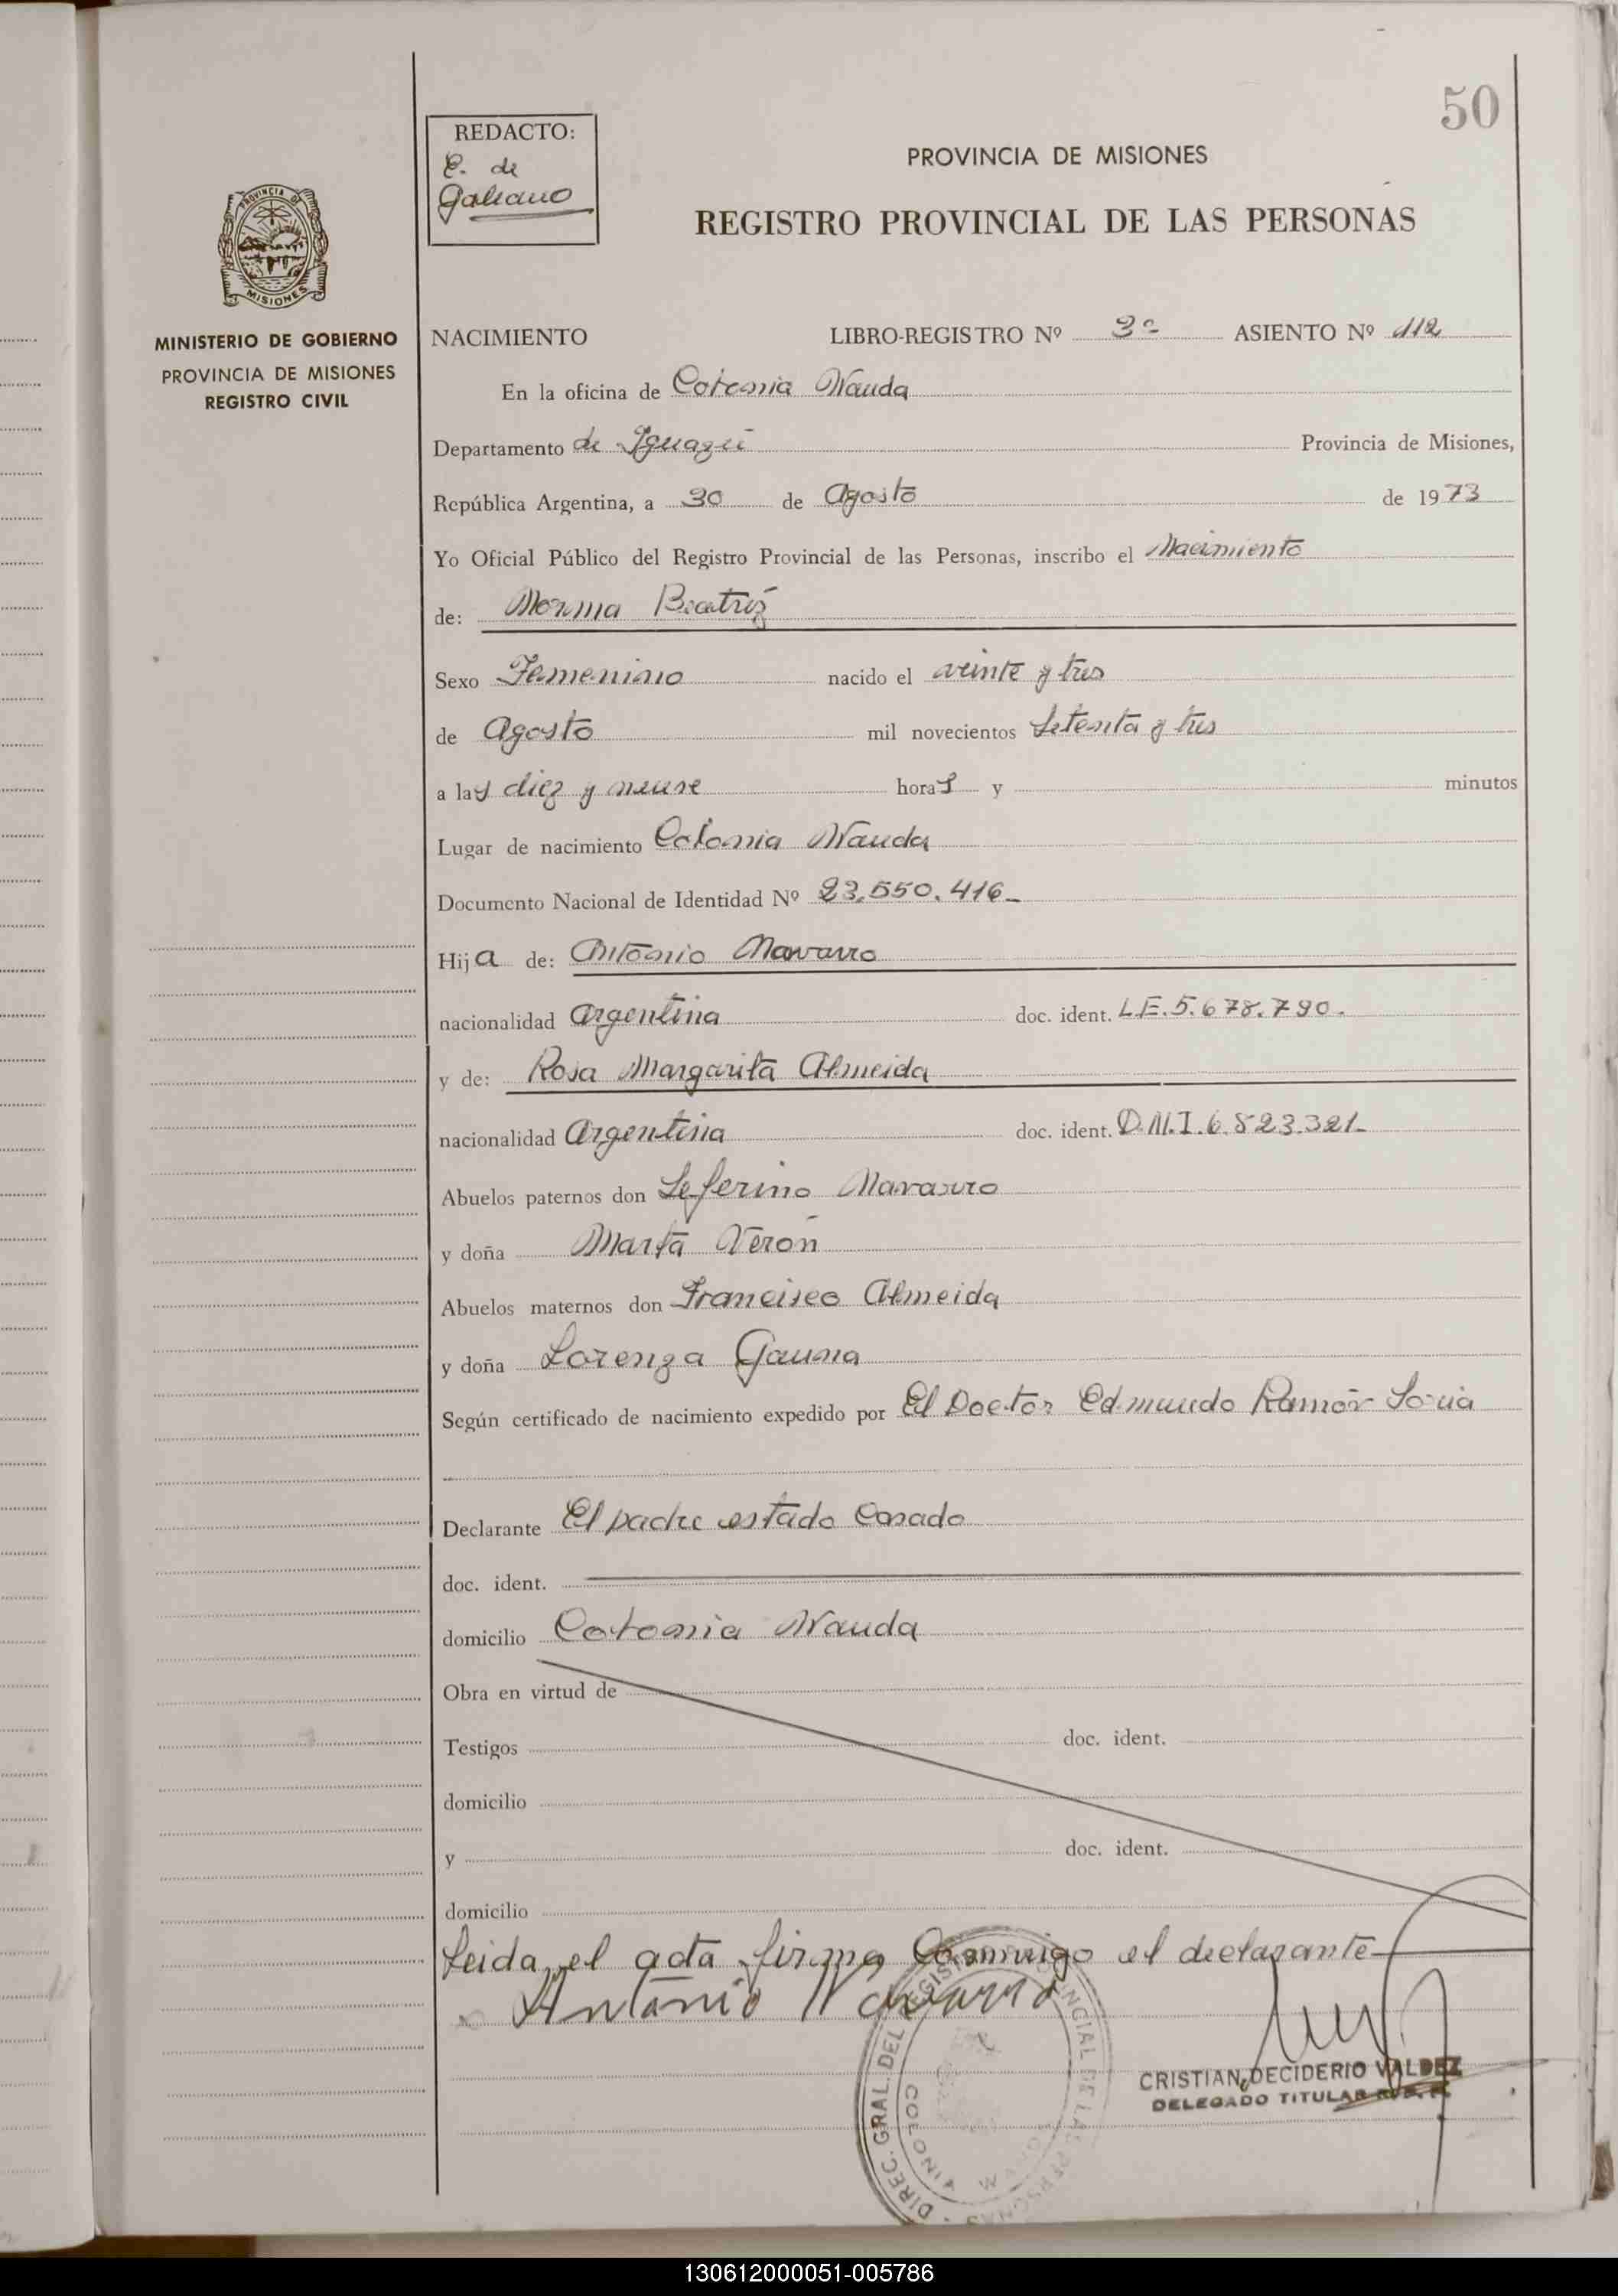 50
REDACTO:
E. de
Galeano
PROVINCIA DE MISIONES
REGISTRO PROVINCIAL DE LAS PERSONAS
PROVINCIA DE
MISIONES
MINISTERIO DE GOBIERNO
PROVINCIA DE MISIONES
REGISTRO CIVIL
NACIMIENTO LIBRO-REGISTRO Nº 3º ASIENTO Nº 112
En la oficina de Colonia Wanda
Departamento de Iguazú Provincia de Misiones,
República Argentina, a 30 de Agosto de 1973
Yo Oficial Público del Registro Provincial de las Personas, inscribo el Nacimiento
de: Norma Beatriz
Sexo Femenino nacido el veinte y tres
de Agosto mil novecientos Setenta y tres
a las diez y nueve horas y minutos
Lugar de nacimiento Colonia Wanda
Documento Nacional de Identidad Nº 23.550.416_
Hija de: Antonio Navarro
nacionalidad Argentina doc. ident. L.E. 5.678.790.
y de: Rosa Margarita Almeida
nacionalidad Argentina doc. ident. D.N.I. 6.823.321_
Abuelos paternos don Seferino Navarro
y doña Marta Verón
Abuelos maternos don Francisco Almeida
y doña Lorenza Gauna
Según certificado de nacimiento expedido por El Doctor Edmundo Ramón Soria
Declarante El padre estado Casado
doc. ident.
domicilio Colonia Wanda
Obra en virtud de
Testigos doc. ident.
domicilio
y doc. ident.
domicilio
Leida el acta firma Conmigo el declarante
Antonio Navarro
DIREC. GRAL. DEL REGISTRO PROVINCIAL DE LAS PERSONAS
CRISTIAN DECIDERIO VALDEZ
DELEGADO TITULAR
130612000051-005786